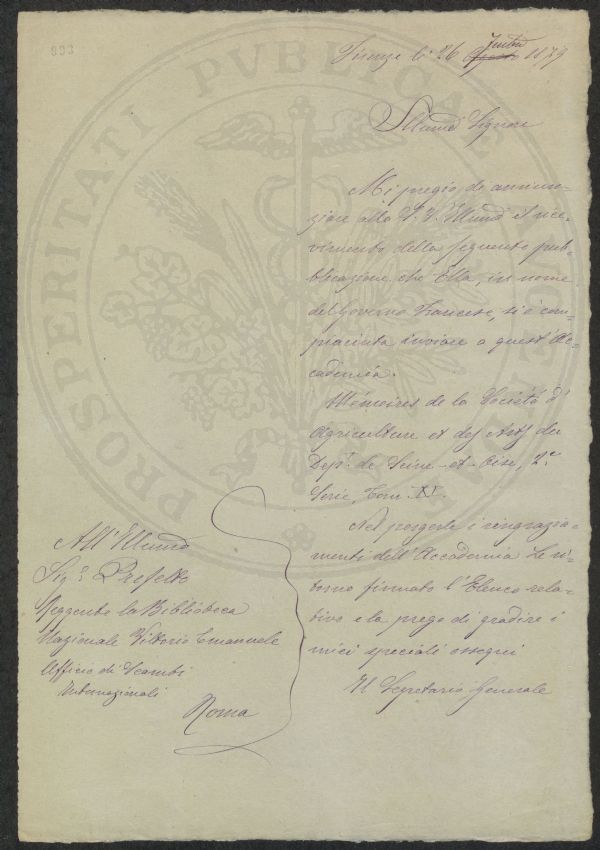 893
Firenze li 26 Aprile Giugno 1879
Illmo Signore
Mi pregio di annun-
ziare alla S. V. Illma il rice-
vimento della seguente pub-
blicazione che Ella, in nome
del Governo Francese, si è com-
piaciuta inviare a quest'Ac-
cademia.
Mémoires de la Société d'
Agriculture et des Arts du
Dept. de Seine-et-Oise, 2.e
Serie, Tom. XI.
Nel porgerle i ringrazia-
menti dell'Accademia Le ri-
torno firmato l'Elenco rela-
tivo e la prego di gradire i
miei speciali ossequi
Il Segretario Generale
All'Illmo
Sig.r Prefetto
Reggente la Biblioteca
Nazionale Vittorio Emanuele
Ufficio di Scambi
Internazionali
Roma
PROSPERITATI PUBLICAE AUGENDAE